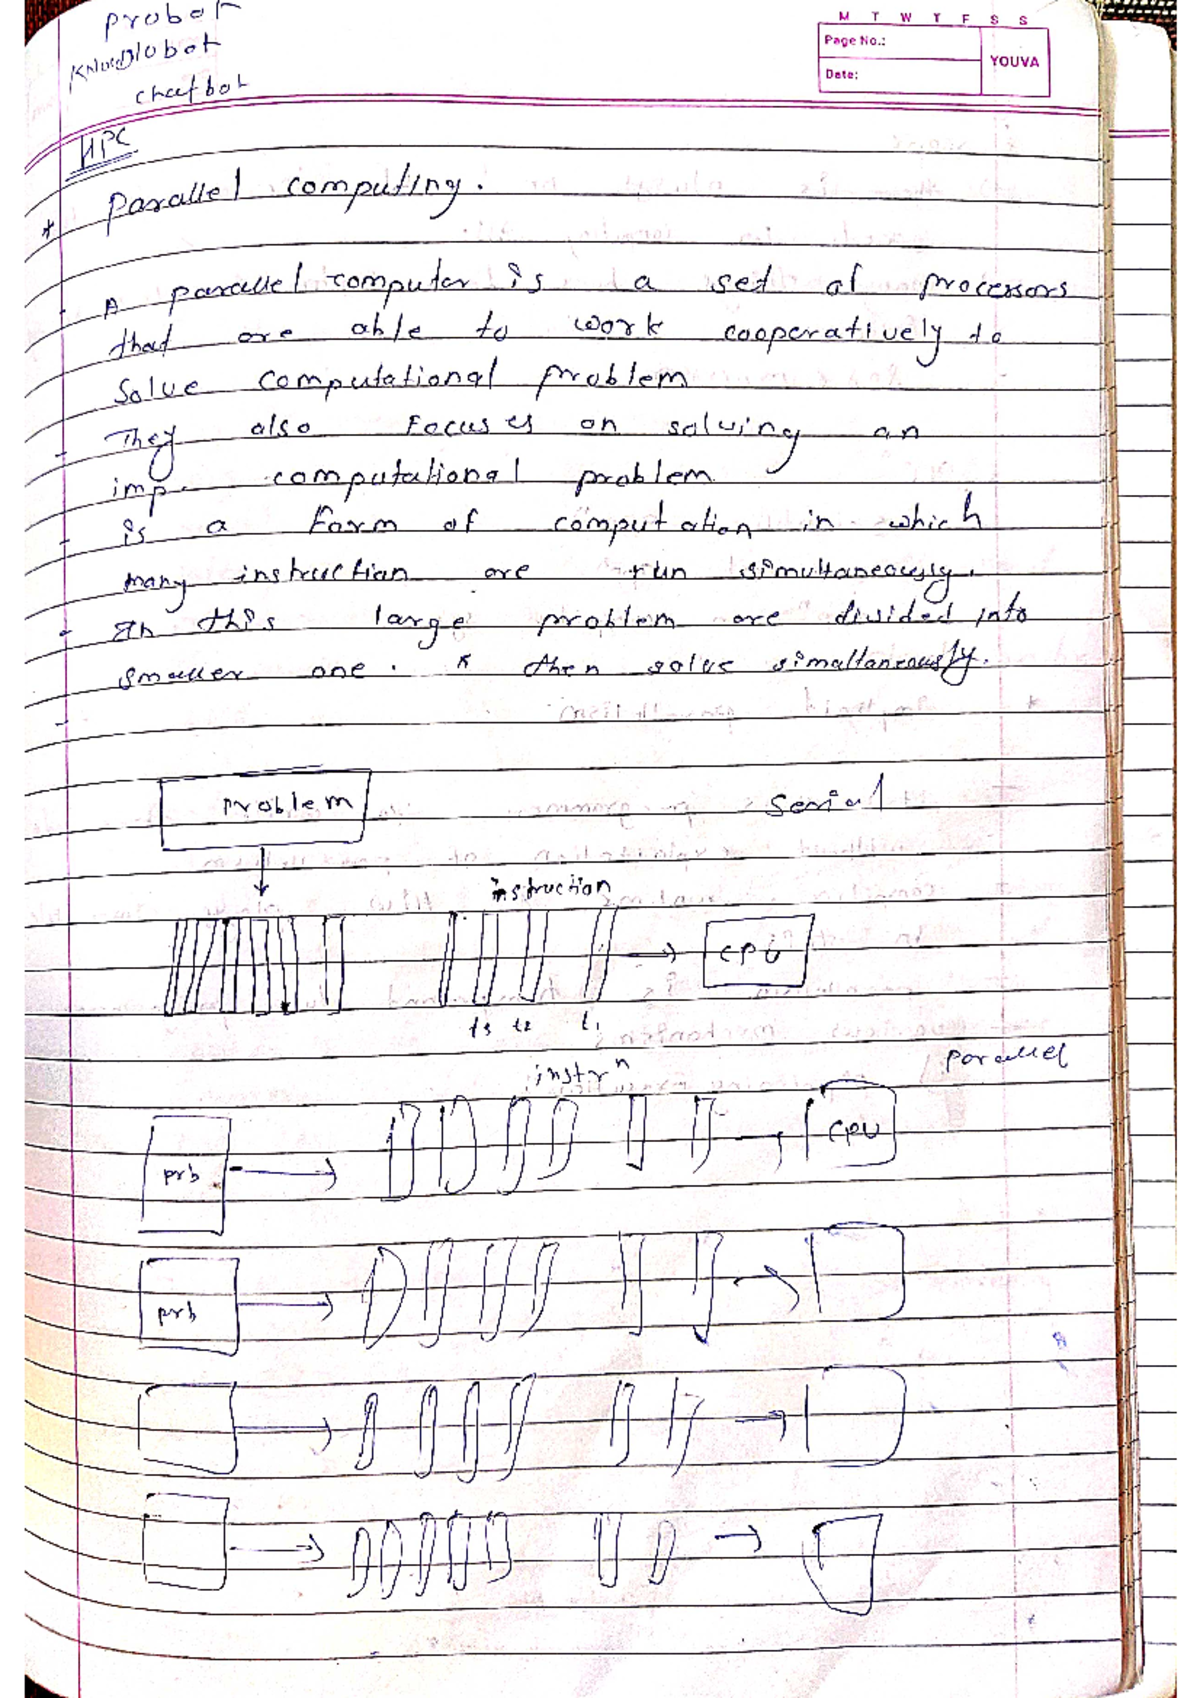 probot
chatbot
M T W T F S S
Page No.:
YOUVA
Date:
HPC
* Parallel computing.
- A parallel computer is a set of processors
that are able to work cooperatively to
solve computational problem
- They also Focuses on solving an
imp. computational problem
- is a Form of computation in which
many instruction are run simultaneously.
- In this large problem are divided into
smaller one. * then solve simultaneously.
-
Problem
Serial
instruction
CPU
t3 t2 t1
Parallel
instrn
prb
CPU
prb